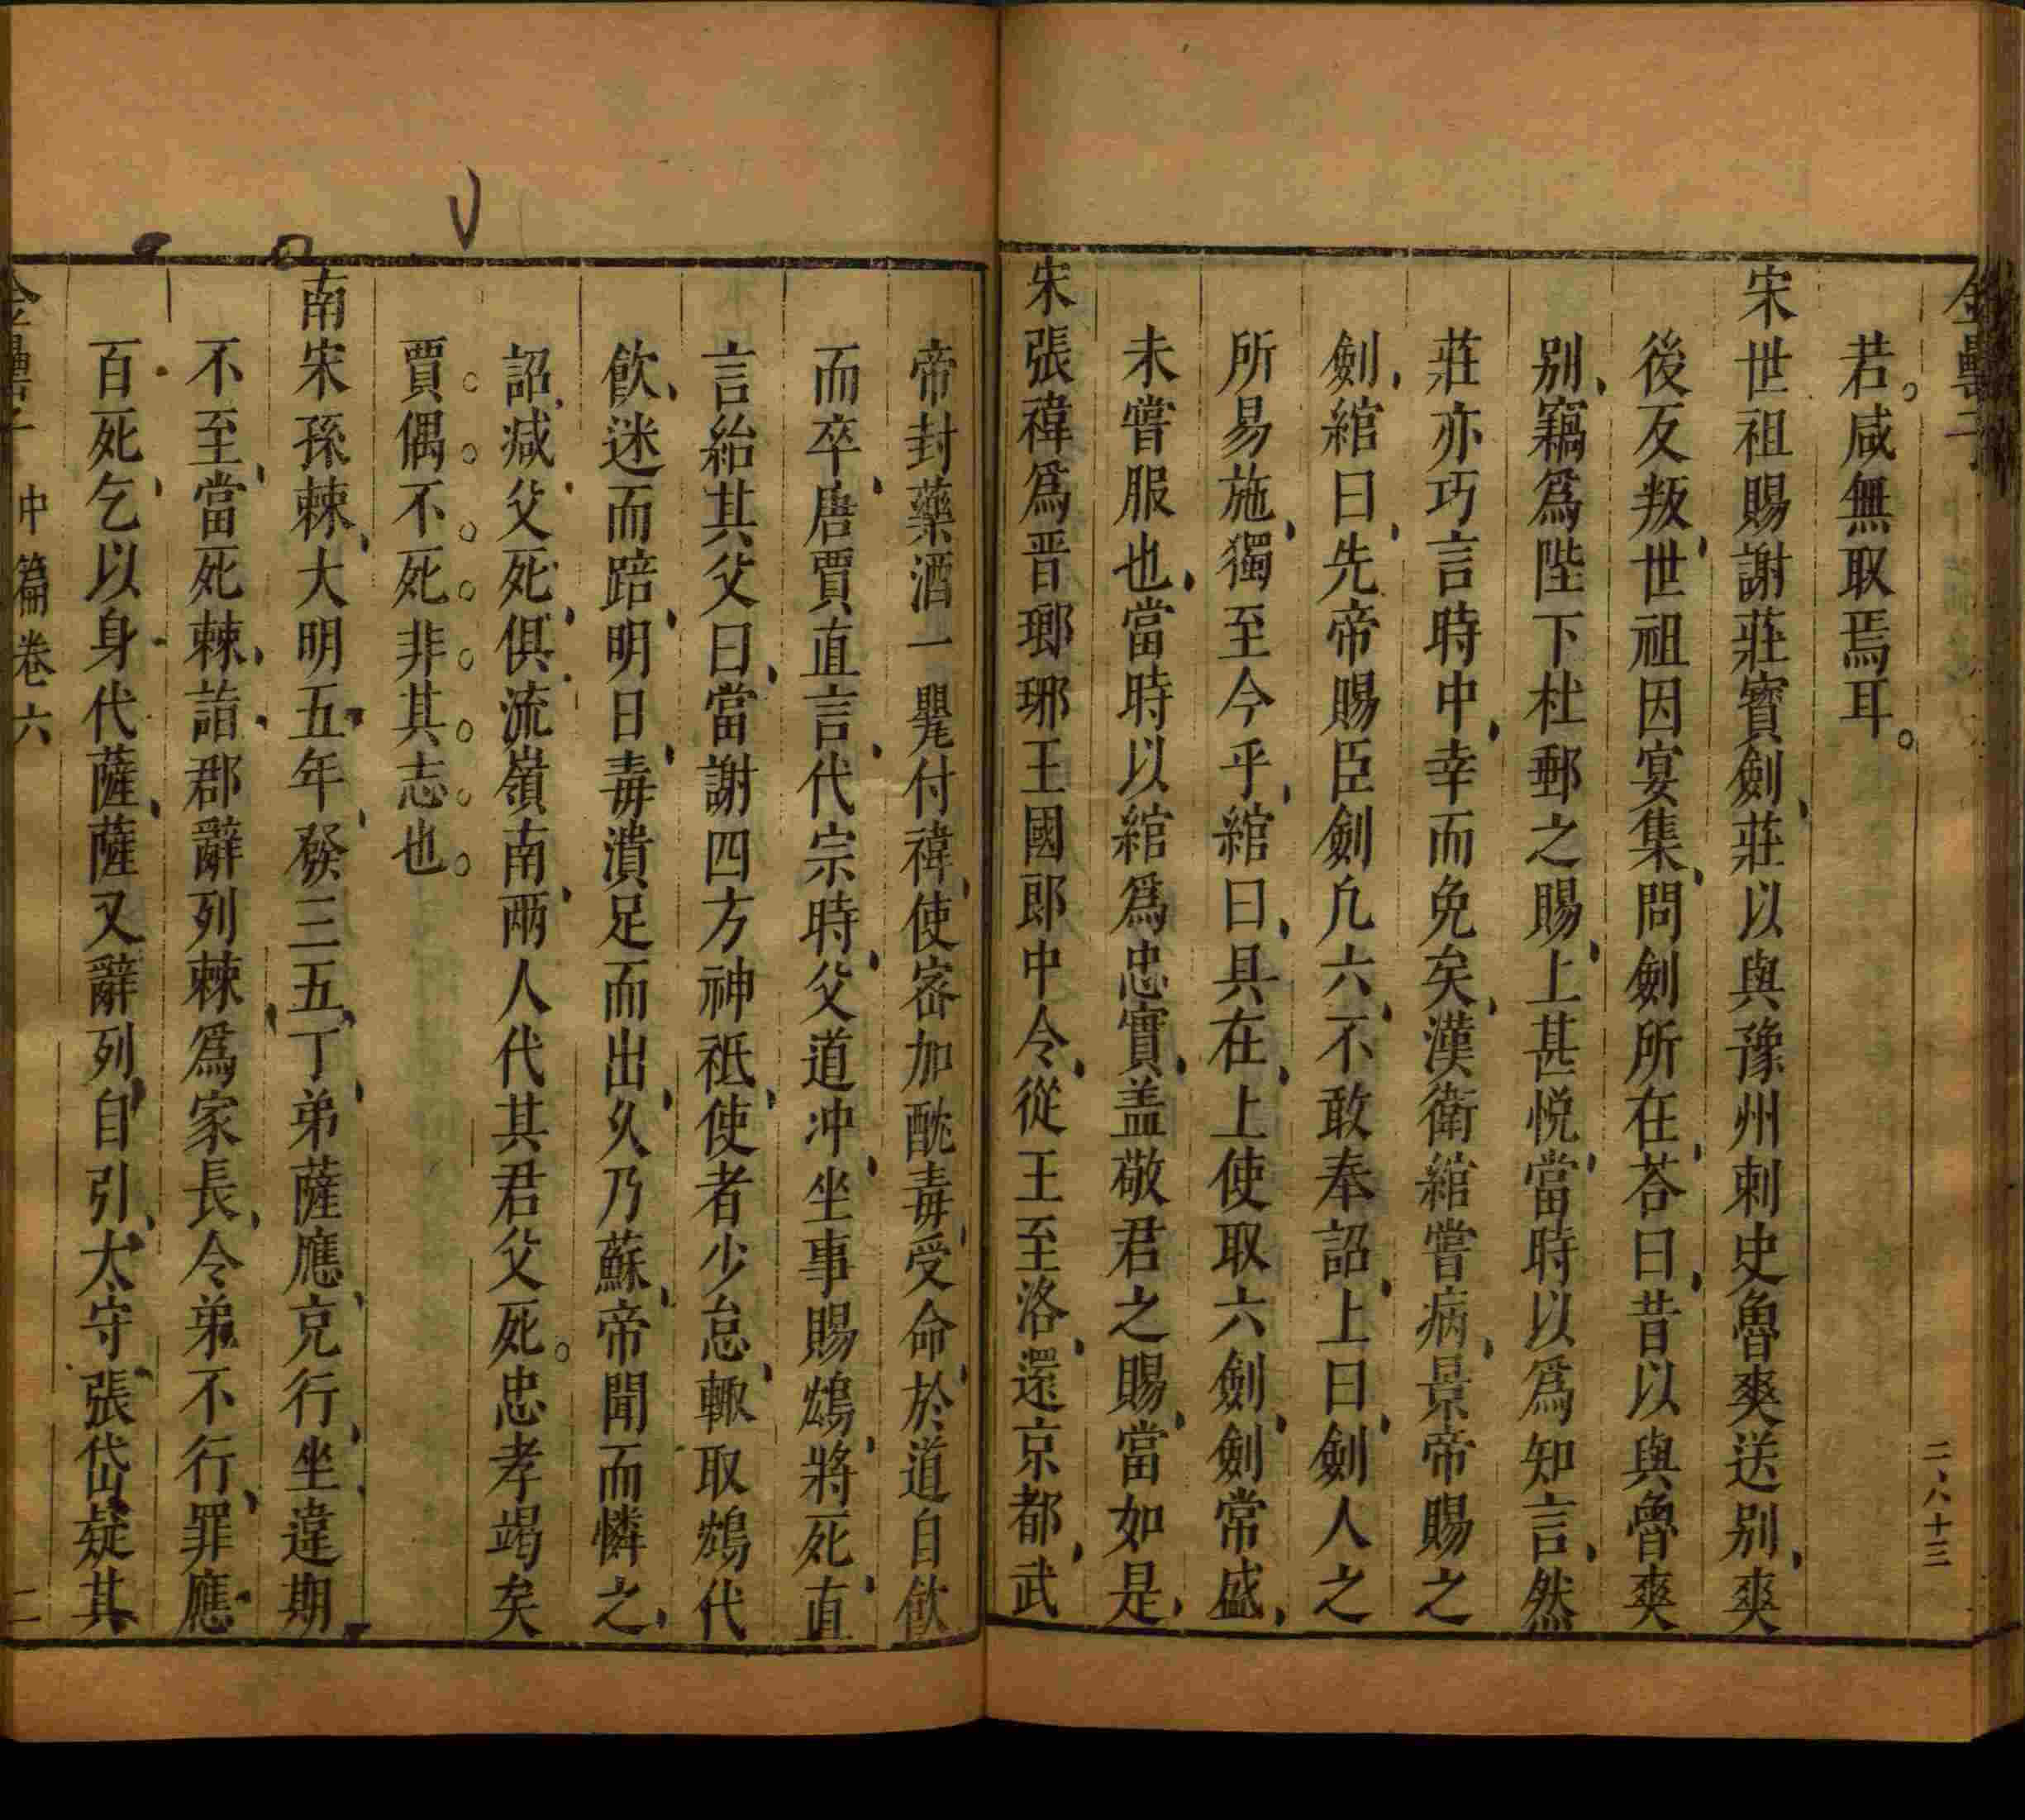 金罍子
二六十三
若咸無取焉耳
宋世祖賜謝莊寳劍莊以與豫州刺史魯爽送别爽
後反叛世祖因宴集問劍所在荅曰昔以與魯爽
别竊爲陛下杜郵之賜上甚悦當時以爲知言然
莊亦巧言時中幸而免矣漢衛綰嘗病景帝賜之
劍綰曰先帝賜臣劍凡六不敢奉詔上曰劍人之
所易施獨至今乎綰曰具在上使取六劍劍常盛
未嘗服也當時以綰爲忠實盖敬君之賜當如是
宋張禕爲晋瑯琊王國郎中令從王至洛還京都武
帝封藥酒一甖付禕使宻加酖毒受命於道自飲
而卒唐賈直言代宗時父道冲坐事賜鴆將死直
言紿其父曰當謝四方神祗使者少怠輙取鴆代
飲迷而踣明日毒潰足而出乆乃蘇帝聞而憐之
詔减父死俱流嶺南兩人代其君父死忠孝竭矣
賈偶不死非其志也
南宋孫棘大明五年發三五丁弟薩應克行坐違期
不至當死棘詣郡辭列棘爲家長令弟不行罪應
百死乞以身代薩薩又辭列自引太守張岱疑其
金罍子 中篇卷六 二